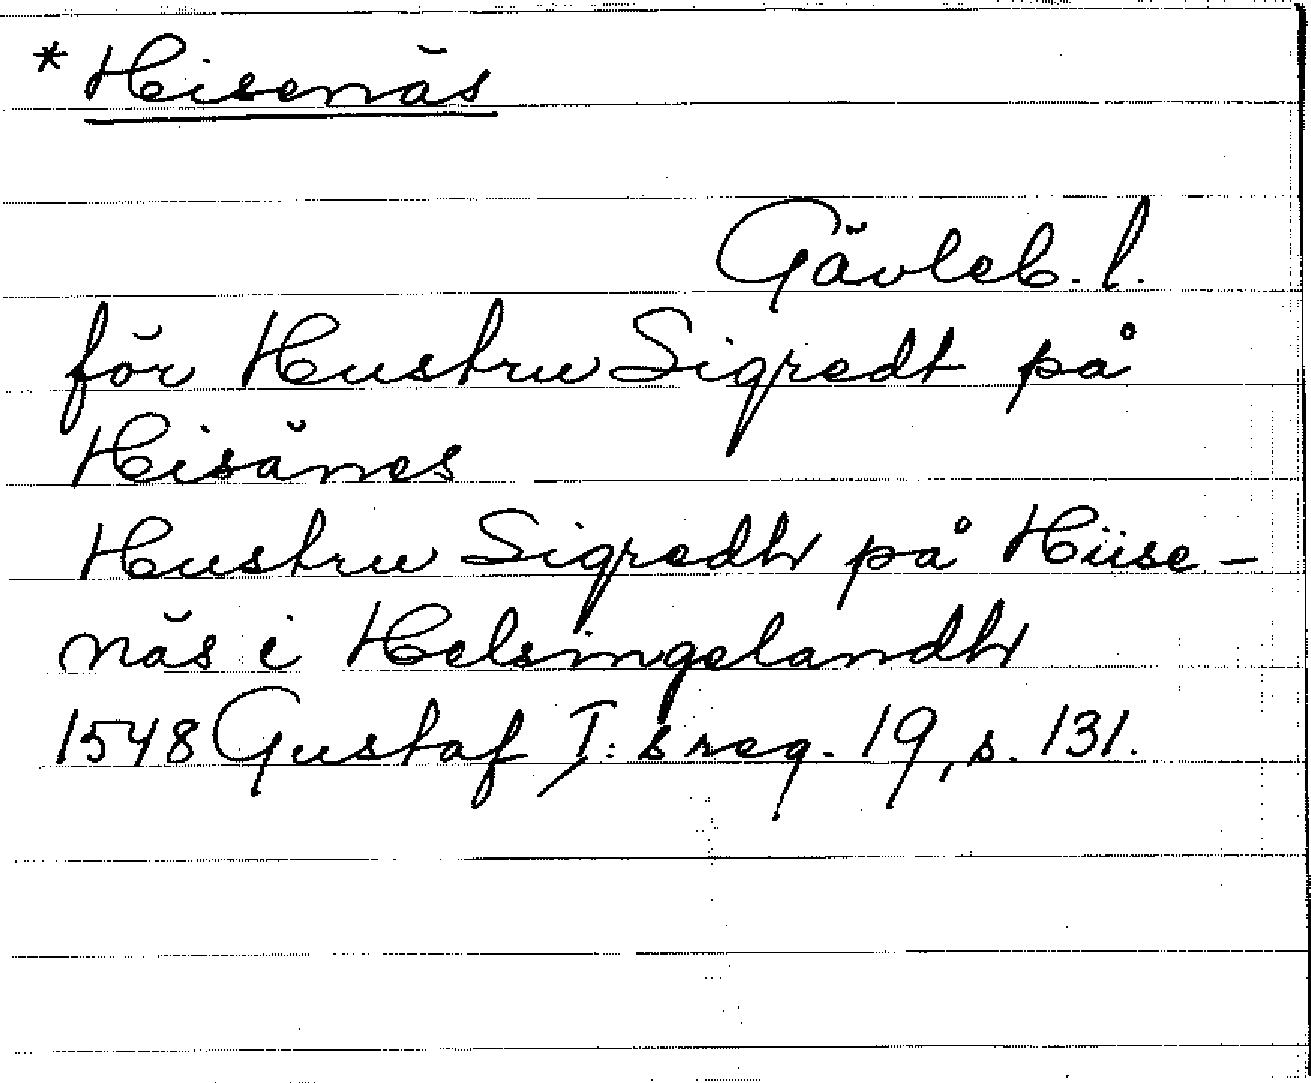 * Hisenäs
Gävleb. l.
för Hustru Sigredt på
Hisänes
Hustru Sigredh på Hiise-
näs i Helsingelandh
1548 Gustaf I:s reg. 19, s. 131.